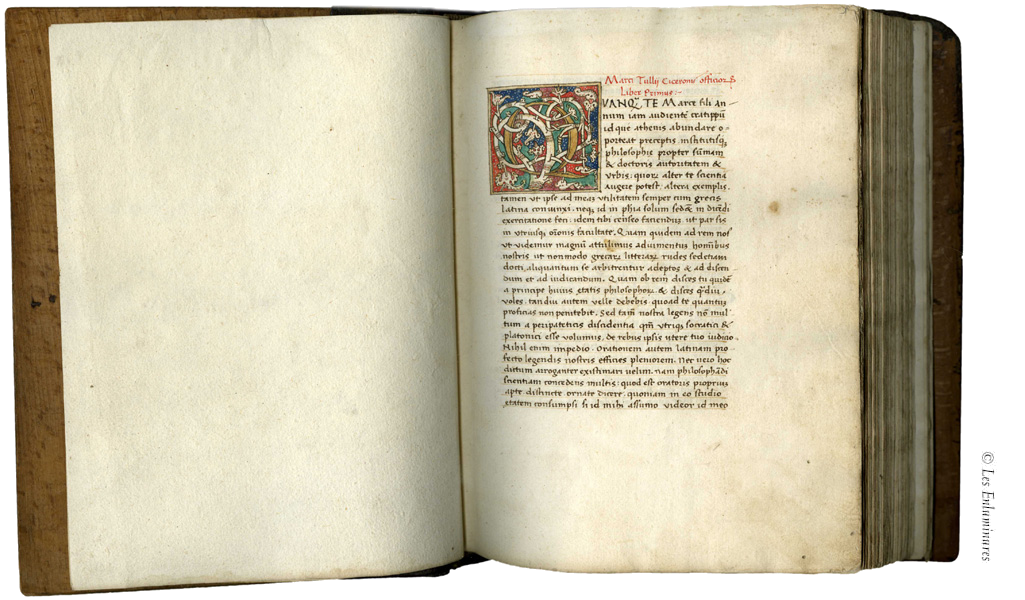 Marci Tullij Ciceronis officioꝝ
Liber Primus:-
VANQ̄, TE Marce fili An-
num iam audientē cratippū
id que athenis abundare o-
porteat preceptis institutisq;
philosophie propter sūmam
& doctoris autoritatem &
Vrbis, quoꝝ alter te scientia
Augere potest, altera exemplis.
tamen vt ipse ad meā vtilitatem semper cum grecis
latina coniunxi, neq; id in phīa solum sed & in dicēdi
exercitatione feci: idem tibi censeo faciendū, ut par sis
in vtriusq; or̄onis facultate. Quam quidem ad rem nos
vt videmur magnū attulimus adiumentū hominibus
nostris ut non modo grecaꝝ litteraꝝ rudes sed etiam
docti, aliquantum se arbitrentur adeptos & ad discen
dum et ad iudicandum. Quam ob rem disces tu quidē
a principe huius etatis philosophoꝝ & disces q̄diu-
voles, tan diu autem velle debebis quoad te quantū
proficias non penitebit. Sed tam̄ nostra legens nō mul-
tum a peripateticis dissidentia qm̄ vtriq; socratici &
platonici esse volumus, de rebus ipsis vtere tuo iudicio.
Nihil enim impedio. Orationem autem latinam pro-
fecto legendis nostris efficies pleniorem. Nec vero hoc
dictum arroganter existimari velim. nam philosophādi
scientiam concedens multis: quod est oratoris propriū
apte, distincte ornate dicere, quoniam in eo studio
etatem consumpsi si id mihi assumo videor id meo
© Les Enluminures